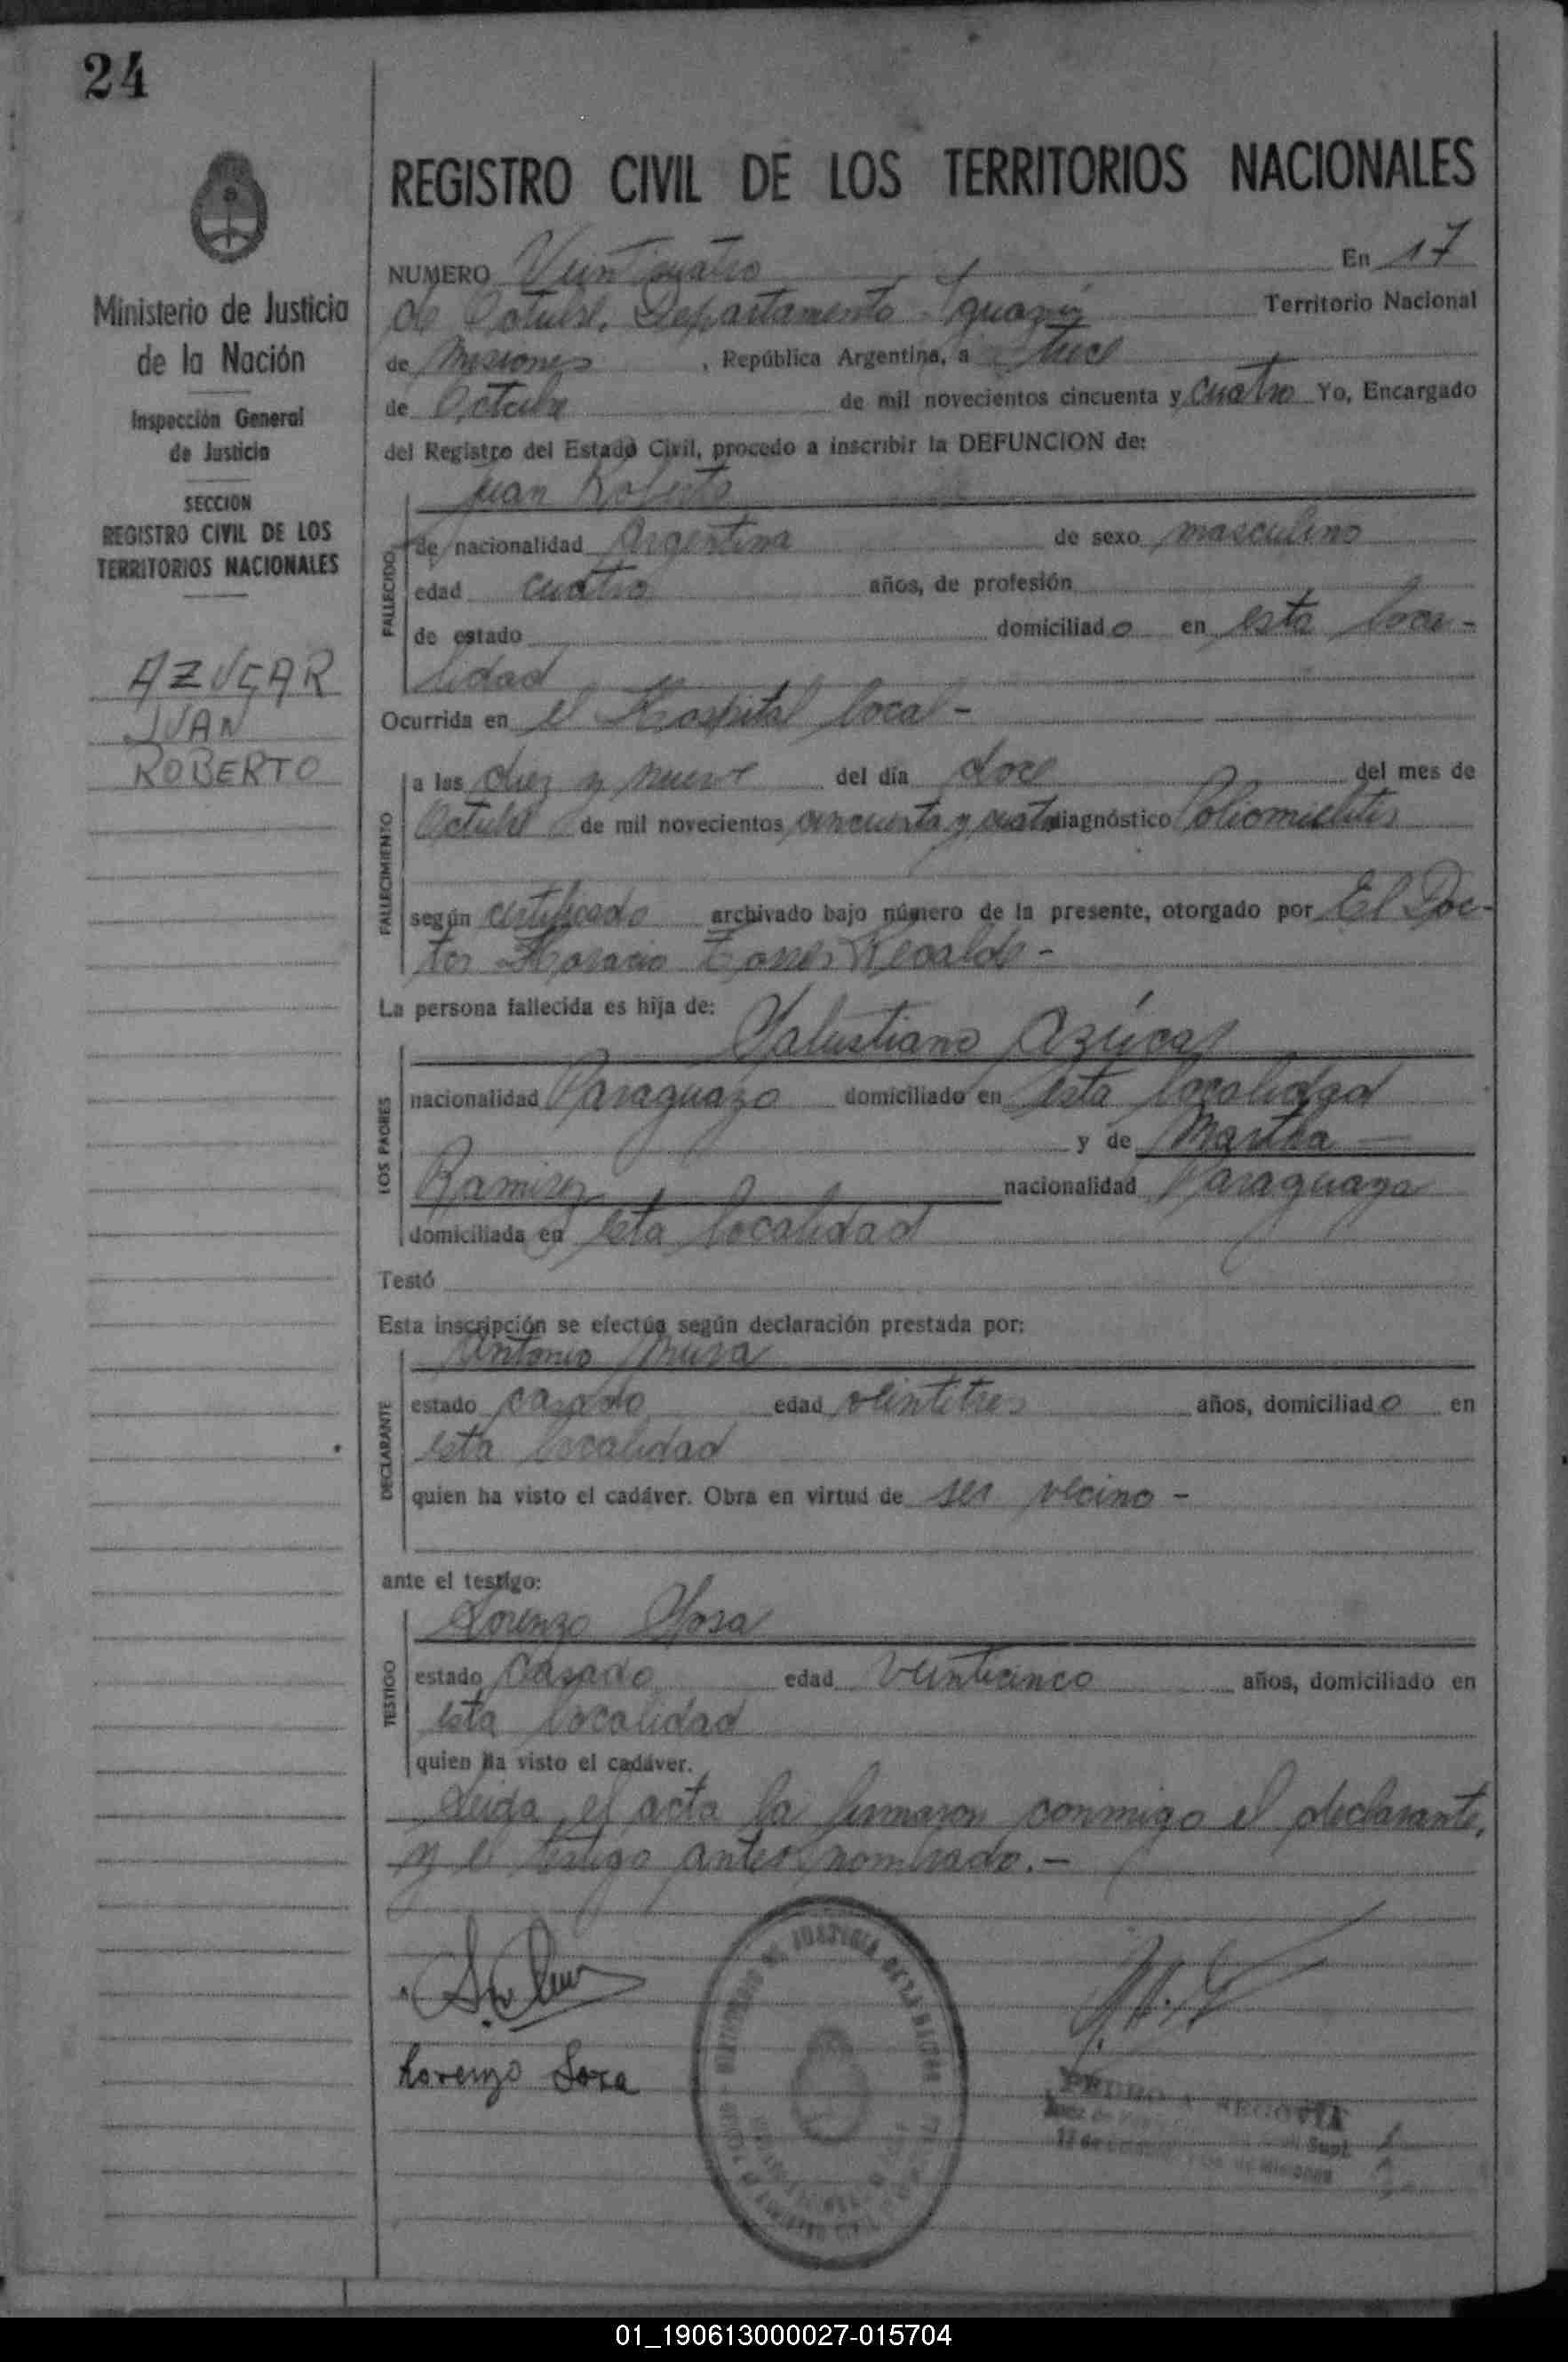 24
REGISTRO CIVIL DE LOS TERRITORIOS NACIONALES
Ministerio de Justicia
de la Nación
Inspección General
de Justicia
SECCION
REGISTRO CIVIL DE LOS
TERRITORIOS NACIONALES
AZUCAR
JUAN
ROBERTO
NUMERO Veinticuatro En 17
de Octubre, Departamento Iguazú Territorio Nacional
de Misiones, República Argentina, a trece
de Octubre de mil novecientos cincuenta y cuatro Yo, Encargado
del Registro del Estado Civil, procedo a inscribir la DEFUNCION de:
Juan Roberto
FALLECIDO
de nacionalidad Argentina de sexo masculino
edad cuatro años, de profesión
de estado domiciliado en esta loca-
lidad
Ocurrida en el Hospital local -
FALLECIMIENTO
a las diez y nueve del día doce del mes de
Octubre de mil novecientos cincuenta y cuatro diagnóstico Poliomielitis
según certificado archivado bajo número de la presente, otorgado por El Doc-
tor Horacio Torres -
La persona fallecida es hija de:
Salustiano Azúcar
LOS PADRES
nacionalidad Paraguayo domiciliado en esta localidad
y de Martha
Ramirez nacionalidad Paraguaya
domiciliada en esta localidad
Testó
Esta inscripción se efectúa según declaración prestada por:
Antonio
DECLARANTE
estado casado edad veintitres años, domiciliado en
esta localidad
quien ha visto el cadáver. Obra en virtud de ser vecino -
ante el testigo:
Lorenzo Sosa
TESTIGO
estado casado edad veinticinco años, domiciliado en
esta localidad
quien ha visto el cadáver.
Leida el acta la firmaron conmigo el declarante,
y el testigo antes nombrado. -
Lorenzo Sosa
PEDRO SEGOVIA
Supl.
01_190613000027-015704